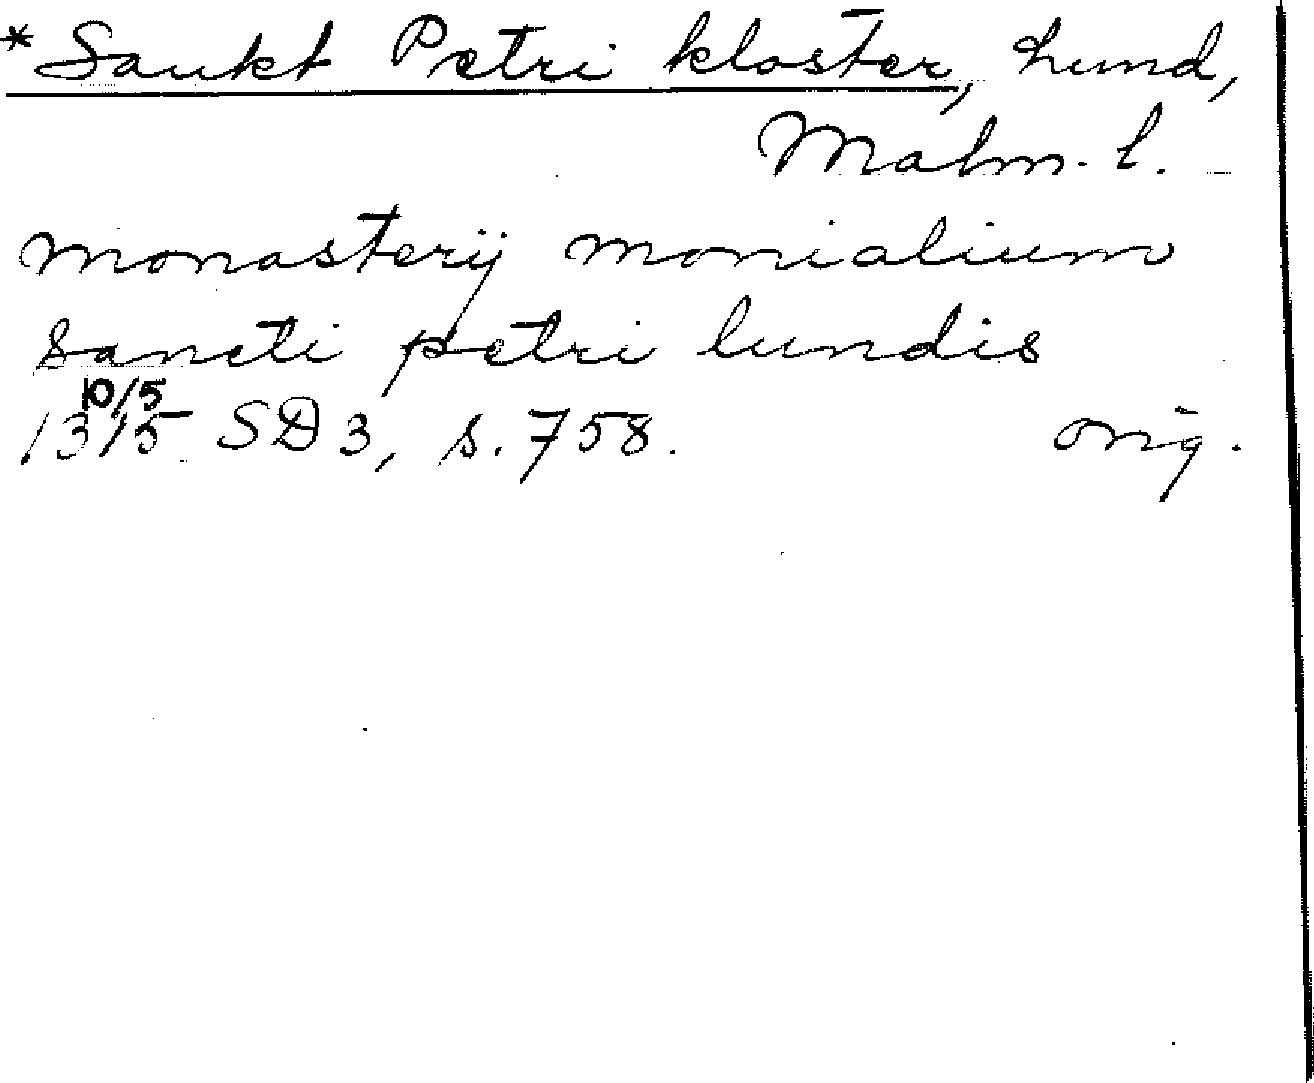 *Sankt Petri kloster, Lund,
Malm. l.
monasterij monialium
sancti petri lundis
10/5
1315 SD 3, s. 758. orig.